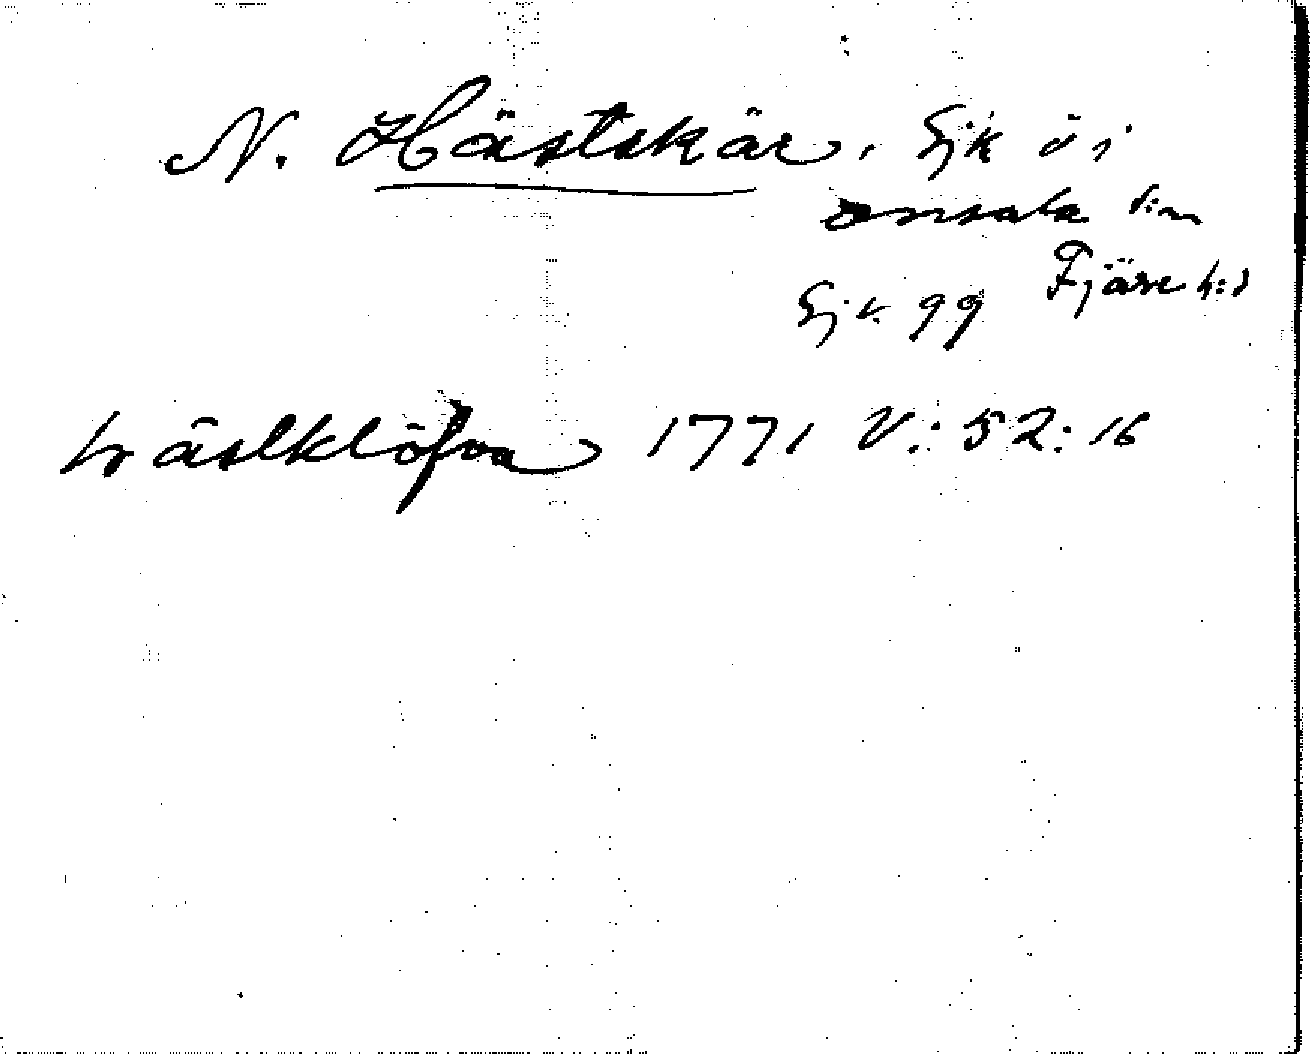 N. Hästskär, Sjk ö i
Onsala s:n
Fjäre h:d
Sjk. 99
hästklöfva 1771 V: 52: 16